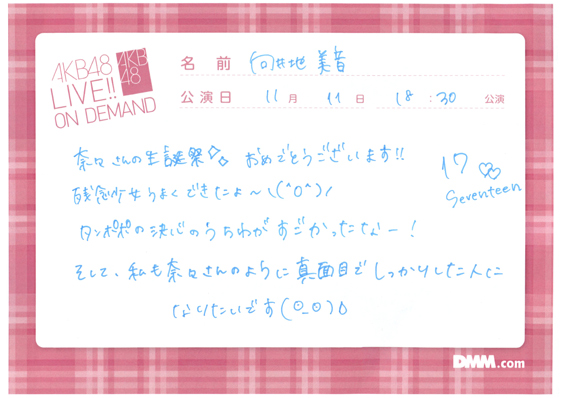 AKB48
LIVE!!
ON DEMAND
AKB
48
名 前 向井地 美音
公演日 11月 11日 18:30 公演
奈々さんの生誕祭 おめでとうございます!!
残念少女うまくできたよ〜\(^o^)/
タンポポの決心のうちわがすごかったなー!
そして、私も奈々さんのように真面目でしっかりした人に
なりたいです(○_○)
17
Seventeen
DMM.com